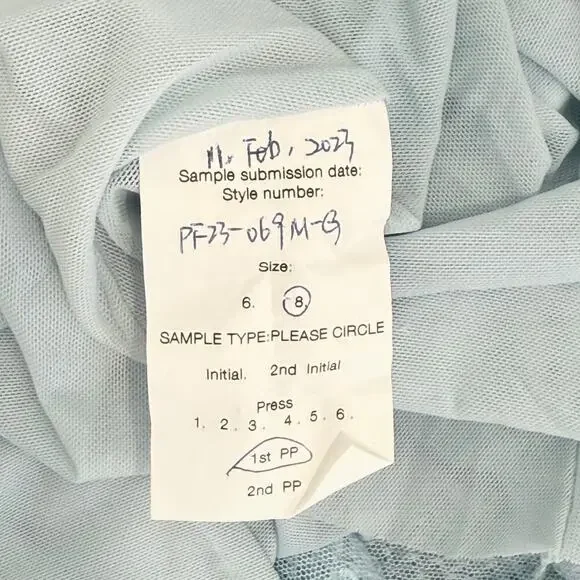 11. Feb, 2023
Sample submission date:
Style number:
PF23-069M-B
Size:
6. 8.
SAMPLE TYPE:PLEASE CIRCLE
Initial. 2nd Initial
Press
1. 2. 3. 4. 5. 6.
1st PP
2nd PP